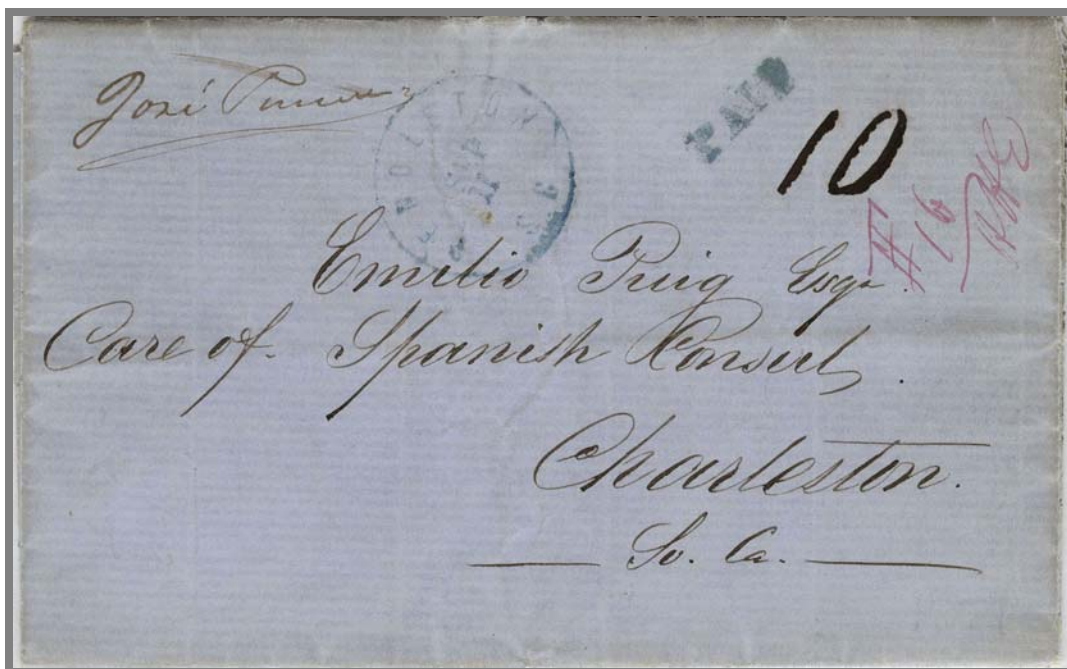 José
PAID
10
#16
Emilio Puig Esqr.
Care of Spanish Consul,
Charleston.
So. Ca.